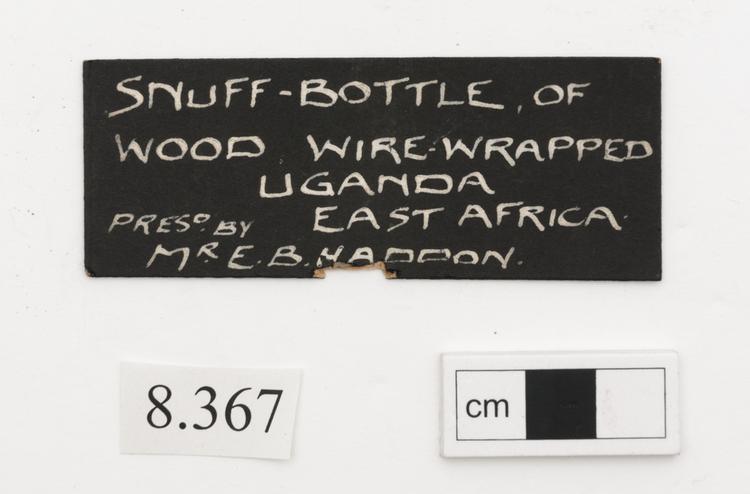 SNUFF-BOTTLE, OF
WOOD WIRE-WRAPPED
UGANDA
EAST AFRICA.
PRESD. BY
MR E. B. HADDON.
8.367
cm